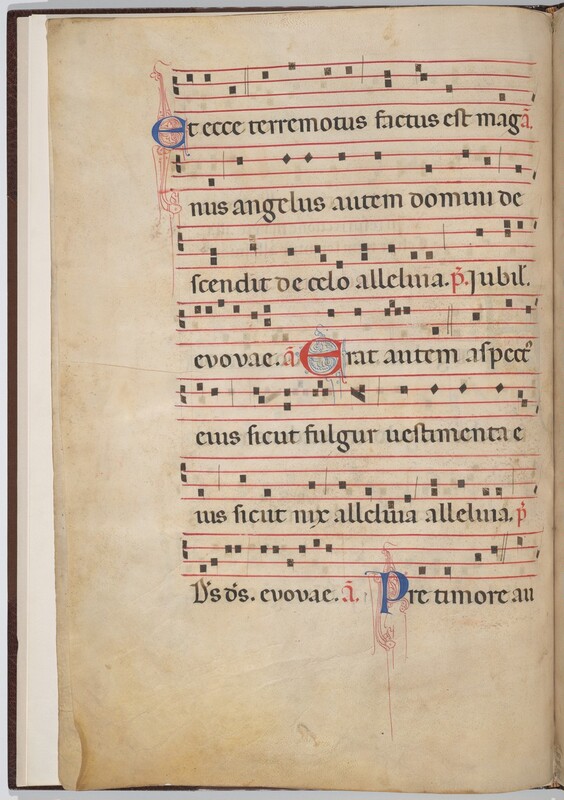 Et ecce terremotus factus est mag ā.
nus angelus autem domini de
scendit de celo alleluia. p̄. Jubil'.
evovae. ā Erat autem aspect᾽
eius sicut fulgur uestimenta e
ius sicut nix alleluia alleluia. p̄
D's d's. evovae. ā. Pre timore au